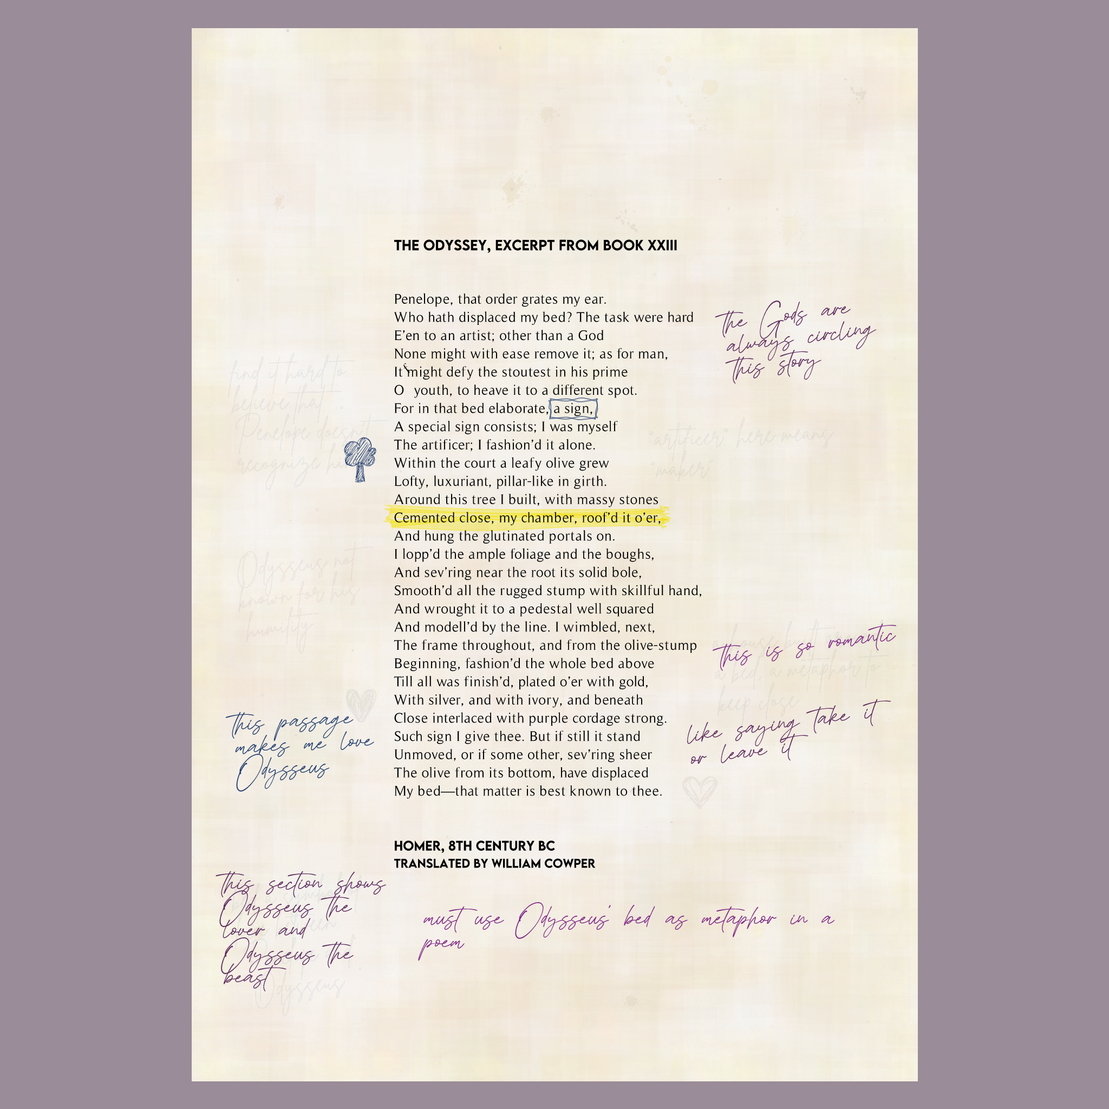 THE ODYSSEY, EXCERPT FROM BOOK XXIII
Penelope, that order grates my ear.
Who hath displaced my bed? The task were hard
E'en to an artist; other than a God
None might with ease remove it; as for man,
It might defy the stoutest in his prime
O youth, to heave it to a different spot.
For in that bed elaborate, a sign,
A special sign consists; I was myself
The artificer; I fashion'd it alone.
Within the court a leafy olive grew
Lofty, luxuriant, pillar-like in girth.
Around this tree I built, with massy stones
Cemented close, my chamber, roof'd it o'er,
And hung the glutinated portals on.
I lopp'd the ample foliage and the boughs,
And sev'ring near the root its solid bole,
Smooth'd all the rugged stump with skillful hand,
And wrought it to a pedestal well squared
And modell'd by the line. I wimbled, next,
The frame throughout, and from the olive-stump
Beginning, fashion'd the whole bed above
Till all was finish'd, plated o'er with gold,
With silver, and with ivory, and beneath
Close interlaced with purple cordage strong.
Such sign I give thee. But if still it stand
Unmoved, or if some other, sev'ring sheer
The olive from its bottom, have displaced
My bed—that matter is best known to thee.
HOMER, 8TH CENTURY BC
TRANSLATED BY WILLIAM COWPER
the Gods are
always circling
this story
find it hard to
believe that
Penelope doesn't
recognize
"artificer" here means
"maker"
Odysseus not
known for his
humility
this is so romantic
a bed, a metaphor to
keep close
like saying take it
or leave it
this passage
makes me love
Odysseus
this section shows
Odysseus the
lover and
Odysseus the
beast
Odysseus
must use Odysseus' bed as metaphor in a
poem